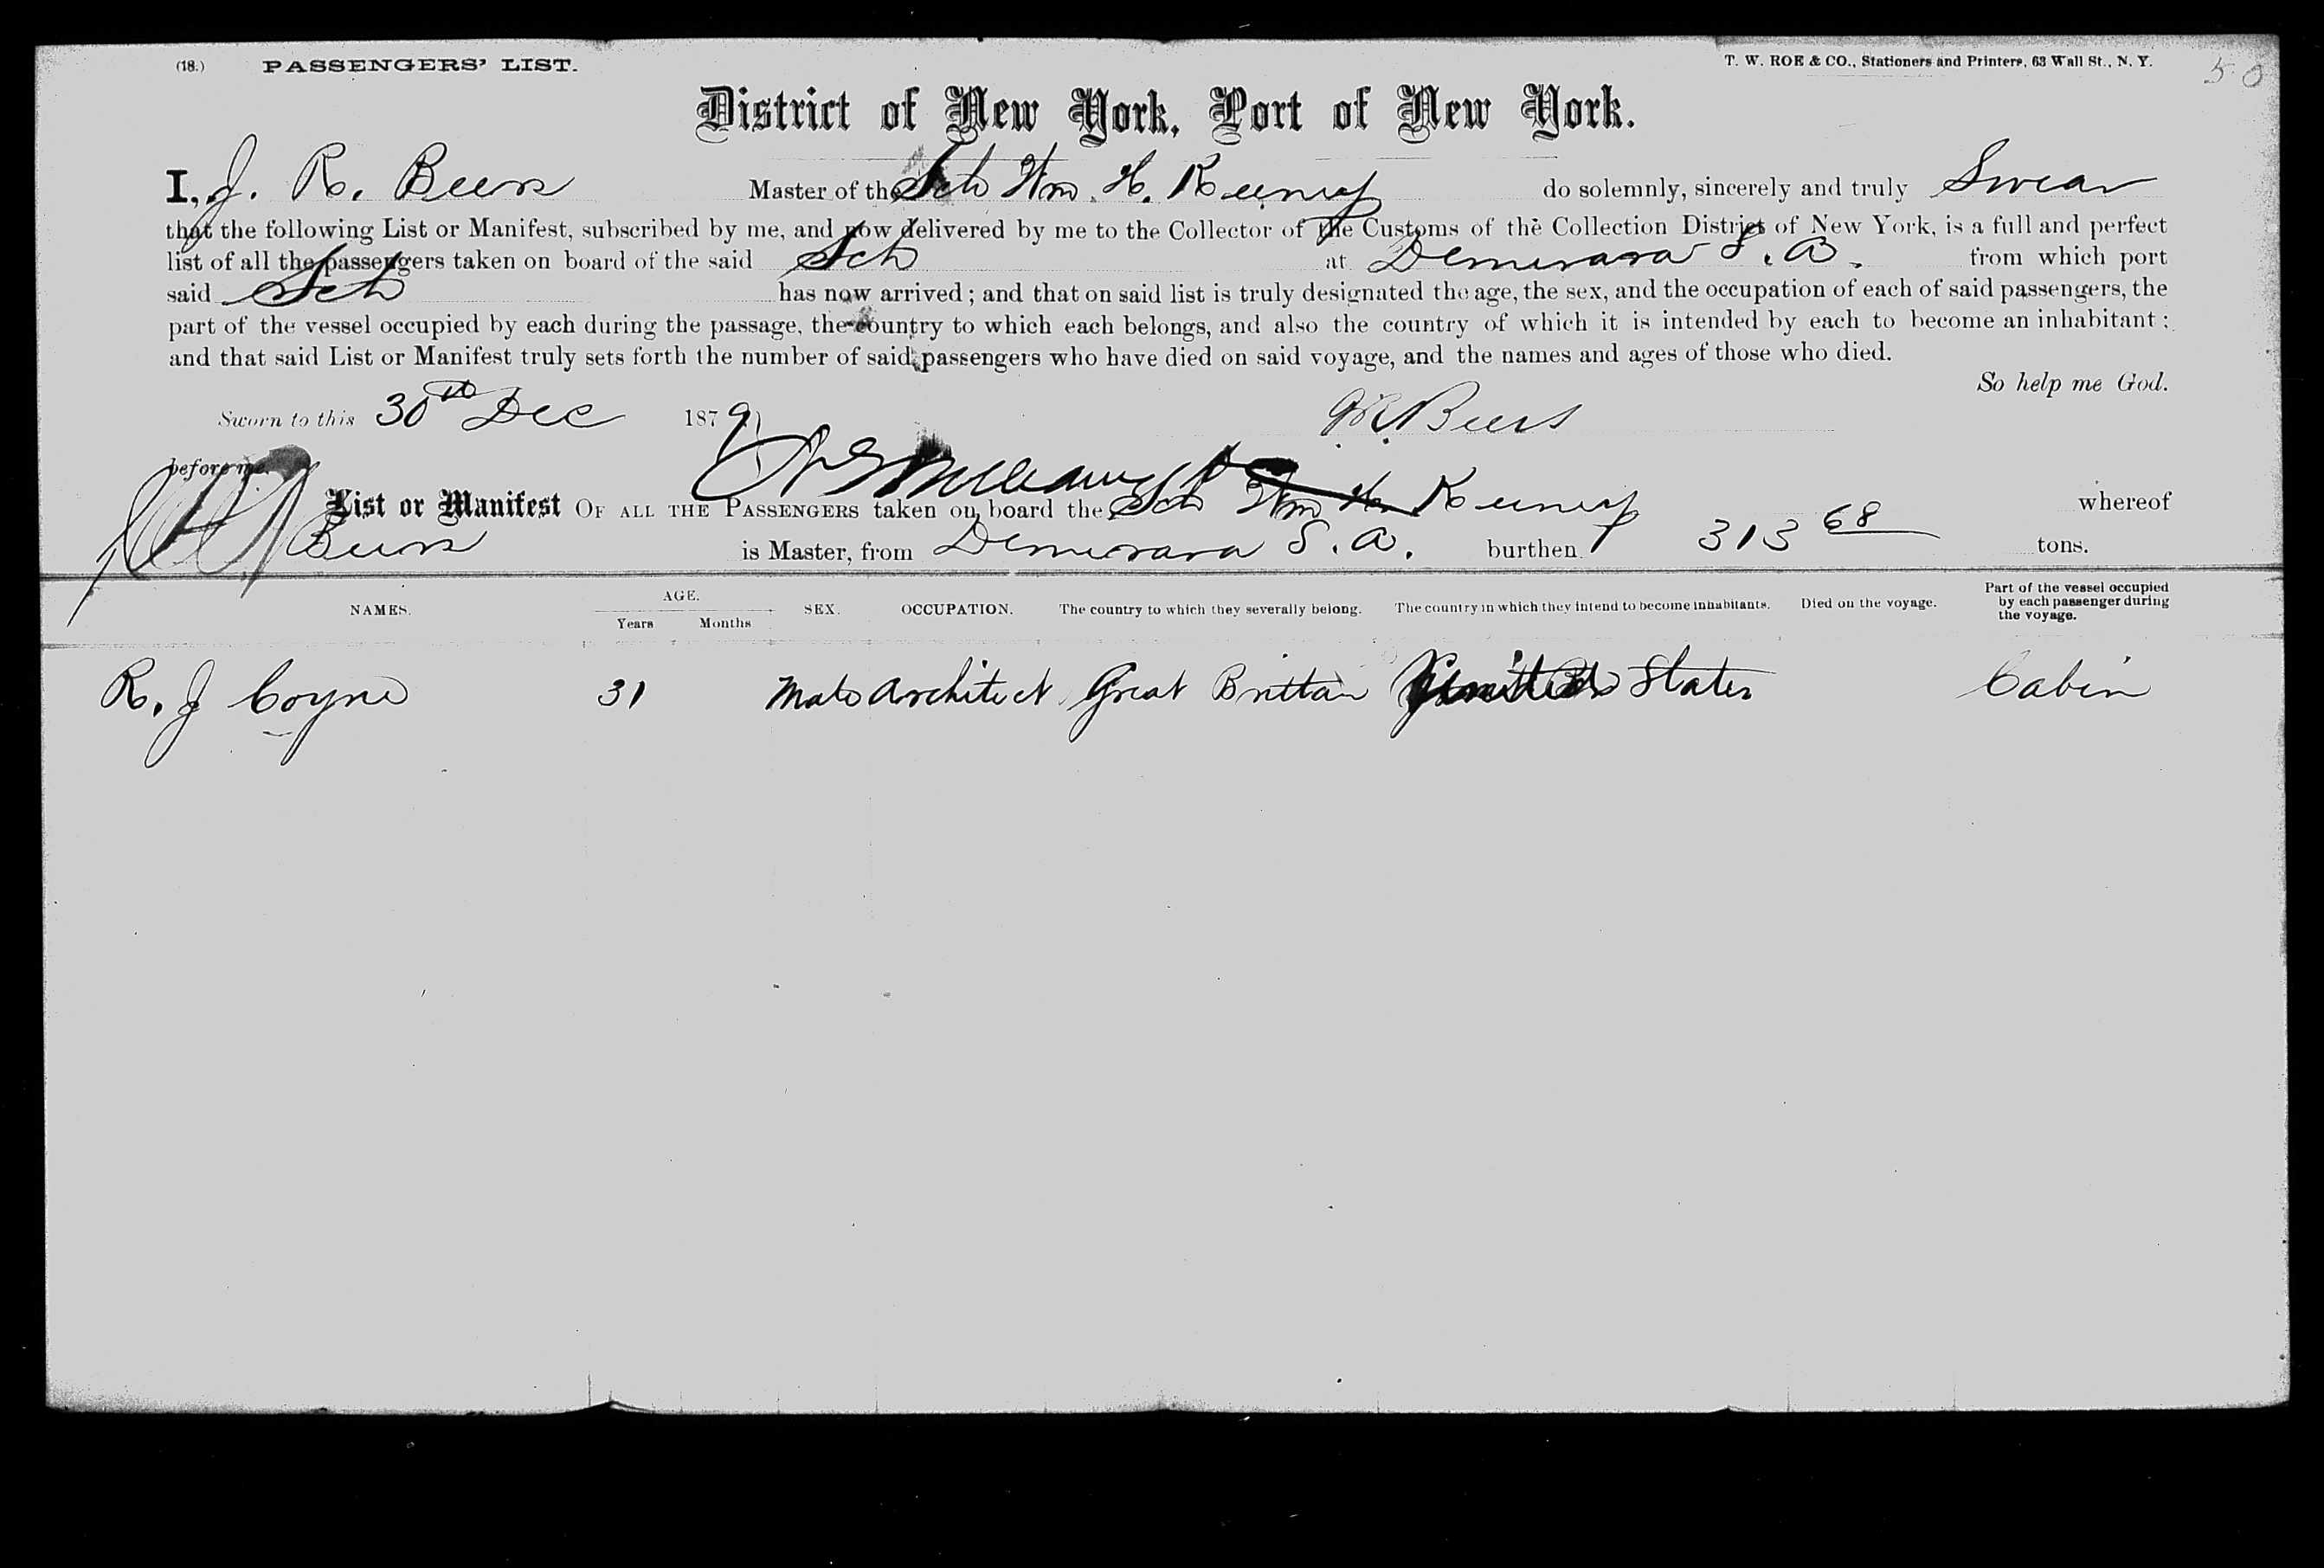 (18.) PASSENGERS' LIST. T. W. ROE & CO., Stationers and Printers, 63 Wall St., N. Y. 50
District of New York, Port of New York.
I, J. R. Beers Master of the Sch Wm. H. Keeney do solemnly, sincerely and truly Swear
that the following List or Manifest, subscribed by me, and now delivered by me to the Collector of the Customs of the Collection District of New York, is a full and perfect
list of all the passengers taken on board of the said Sch at Demerara S. A. from which port
said Sch has now arrived; and that on said list is truly designated the age, the sex, and the occupation of each of said passengers, the
part of the vessel occupied by each during the passage, the country to which each belongs, and also the country of which it is intended by each to become an inhabitant;
and that said List or Manifest truly sets forth the number of said passengers who have died on said voyage, and the names and ages of those who died.
So help me God.
Sworn to this 30th Dec 1879 J. R. Beers
before me
List or Manifest OF ALL THE PASSENGERS taken on board the Sch Wm H. Keeney whereof
Beers is Master, from Demerara S. A. burthen 313 68 tons.
NAMES. AGE. Years Months SEX. OCCUPATION. The country to which they severally belong. The country in which they intend to become inhabitants. Died on the voyage. Part of the vessel occupied by each passenger during the voyage.
R. J Coyne 31 Male Architect Great Brittain United States Cabin